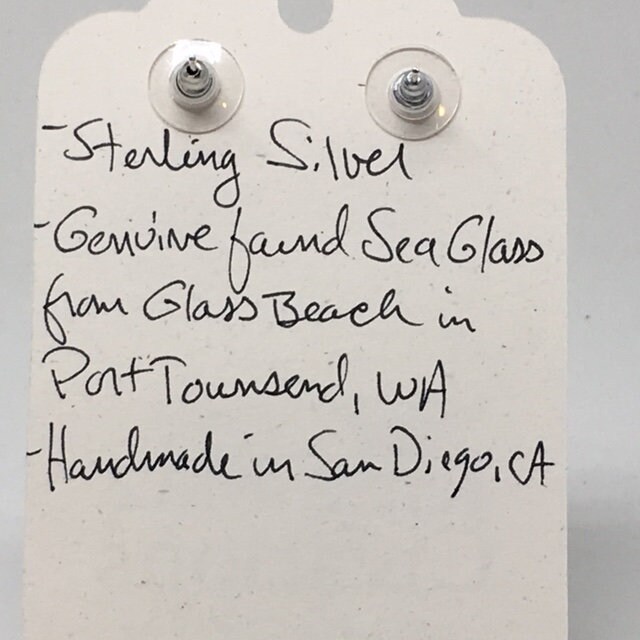 -Sterling Silver
-Genuine found Sea Glass
from Glass Beach in
Port Townsend, WA
-Handmade in San Diego, CA